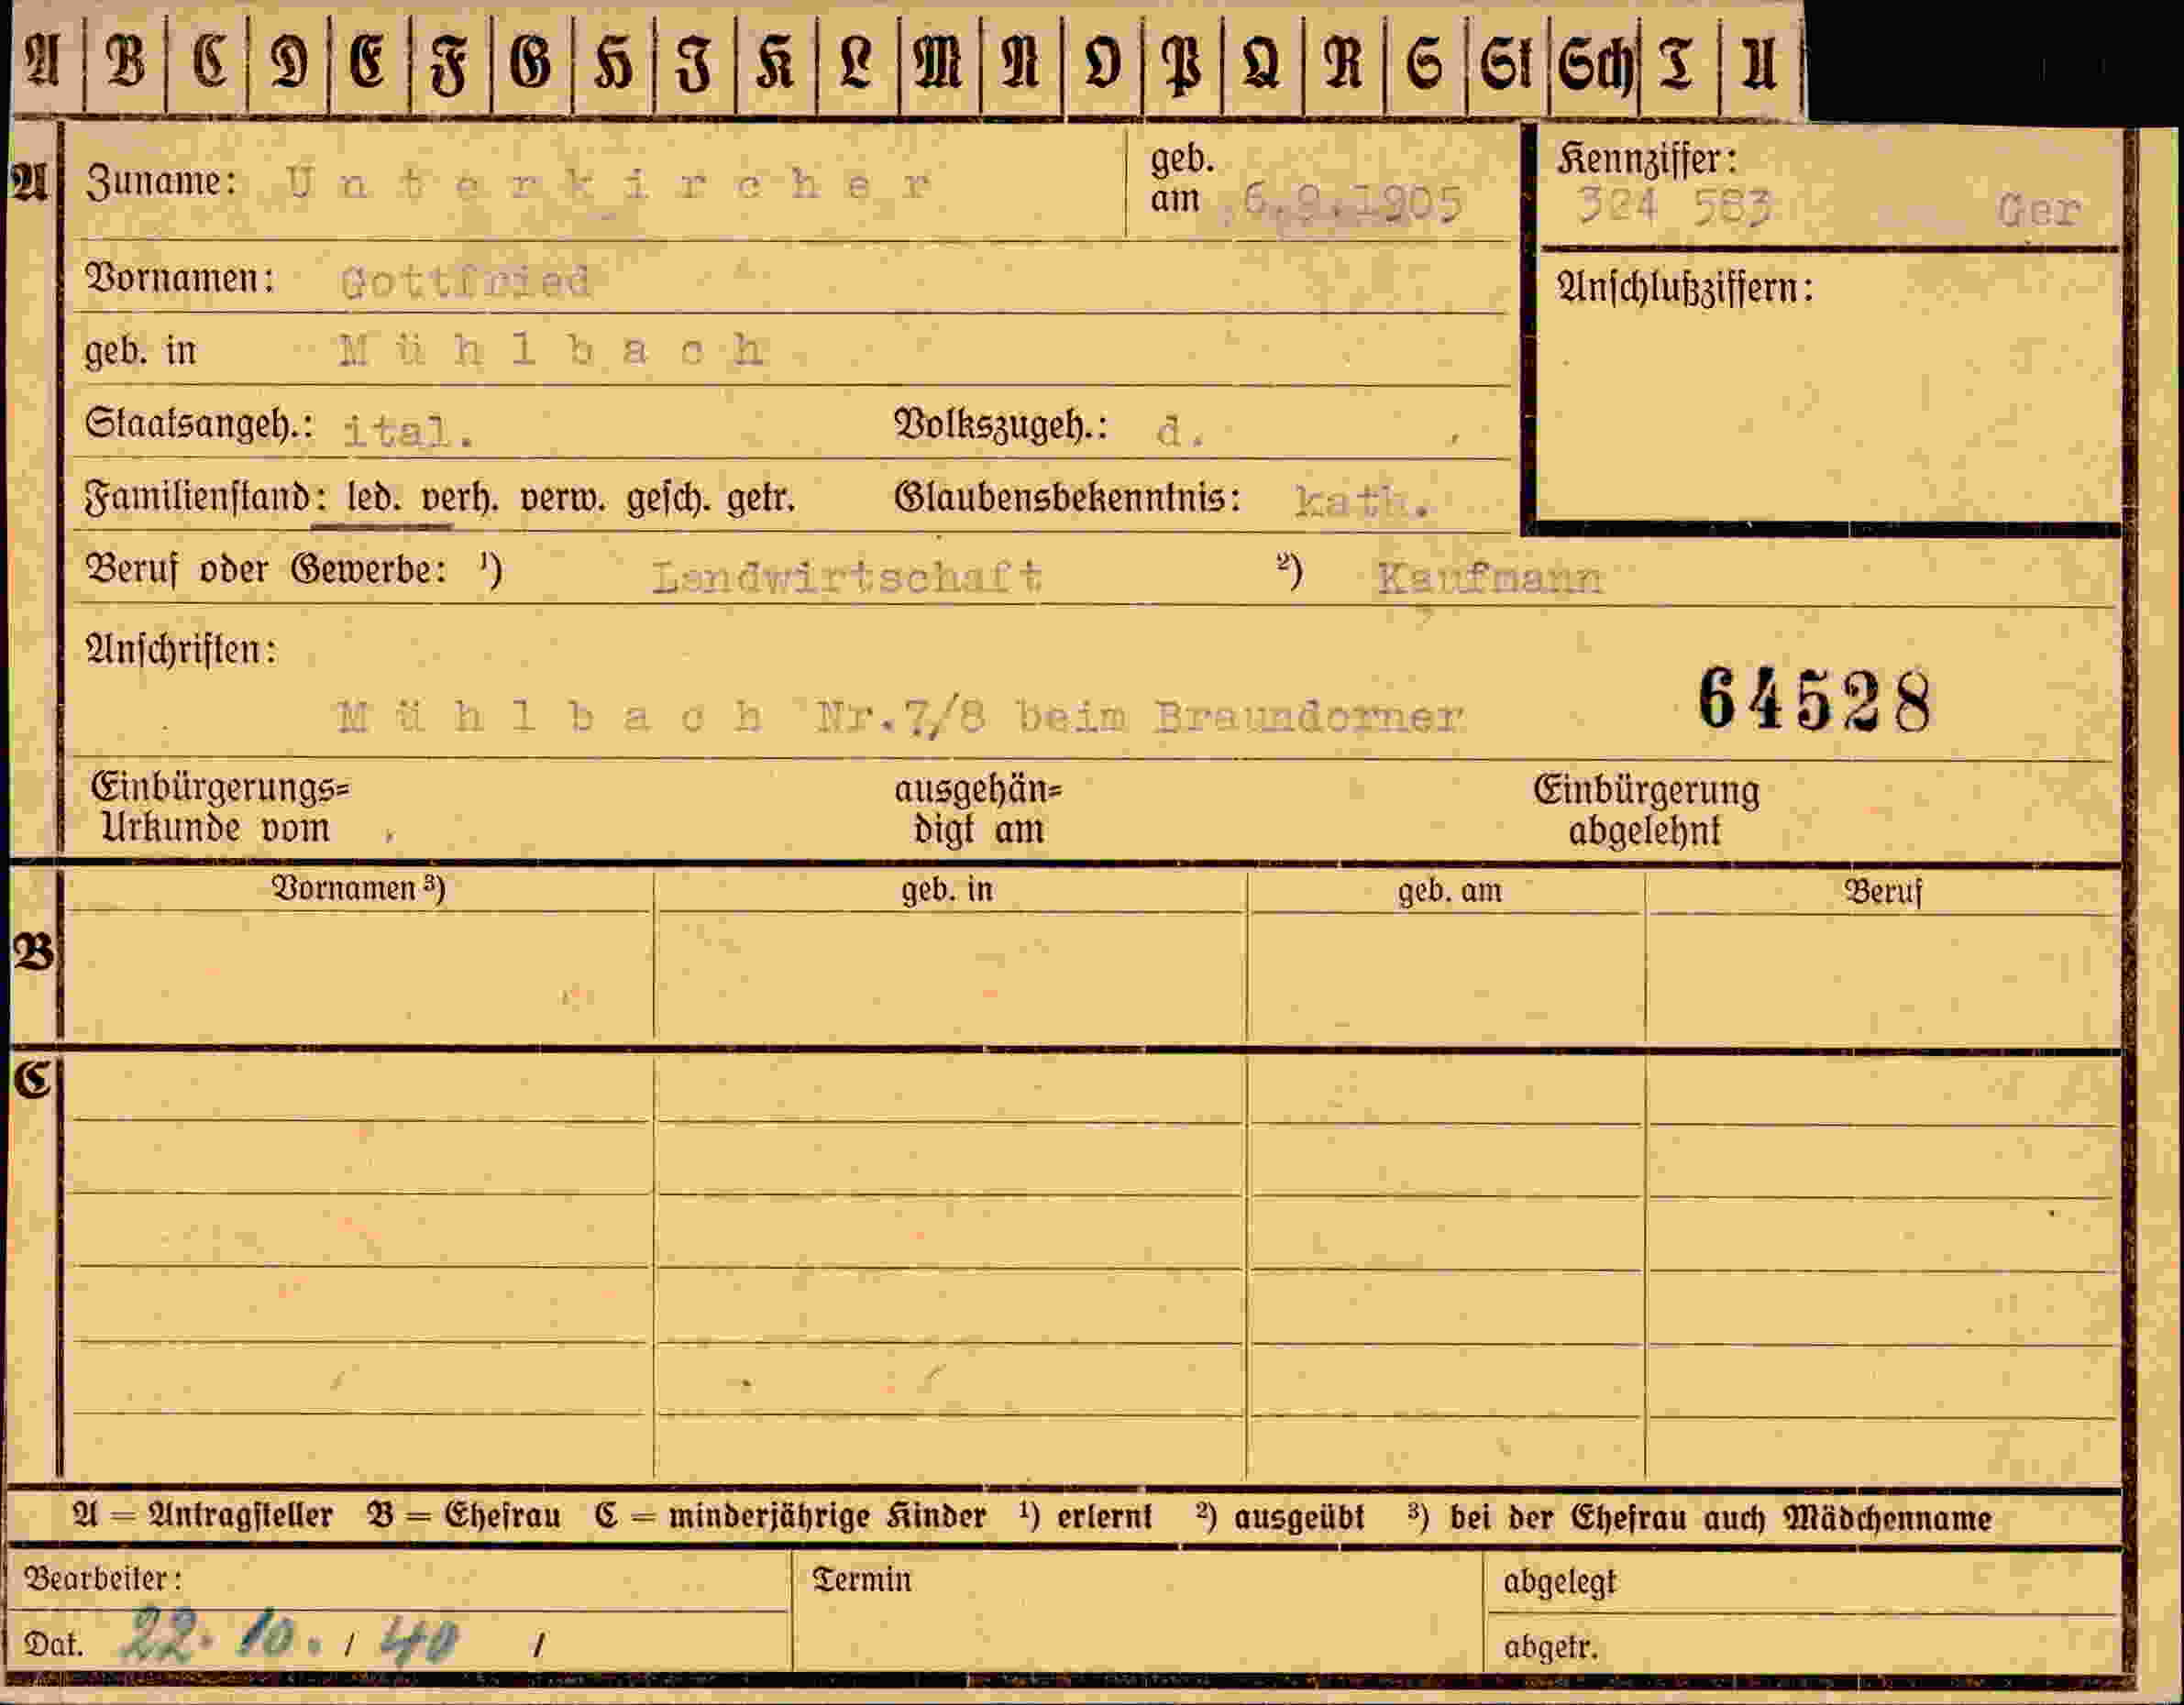 A B C D E F G H I K L M N O P Q R S St Sch T U
A Zuname: Unterkircher geb. am 6.9.1905 Kennziffer:
324 583 Ger
Vornamen: Gottfried Anschlußziffern:
geb. in Mühlbach
Staatsangeh.: ital. Volkszugeh.: d.
Familienstand: led. verh. verw. gesch. getr. Glaubensbekenntnis: kath.
Beruf oder Gewerbe: ¹) Landwirtschaft ²) Kaufmann
Anschriften:
Mühlbach Nr.7/8 beim 64528
Einbürgerungs= ausgehän= Einbürgerung
Urkunde vom digt am abgelehnt
Vornamen ³) geb. in geb. am Beruf
B
C
A = Antragsteller B = Ehefrau C = minderjährige Kinder ¹) erlernt ²) ausgeübt ³) bei der Ehefrau auch Mädchenname
Bearbeiter: Termin abgelegt
Dat. 22. 10. / 40 / abgetr.